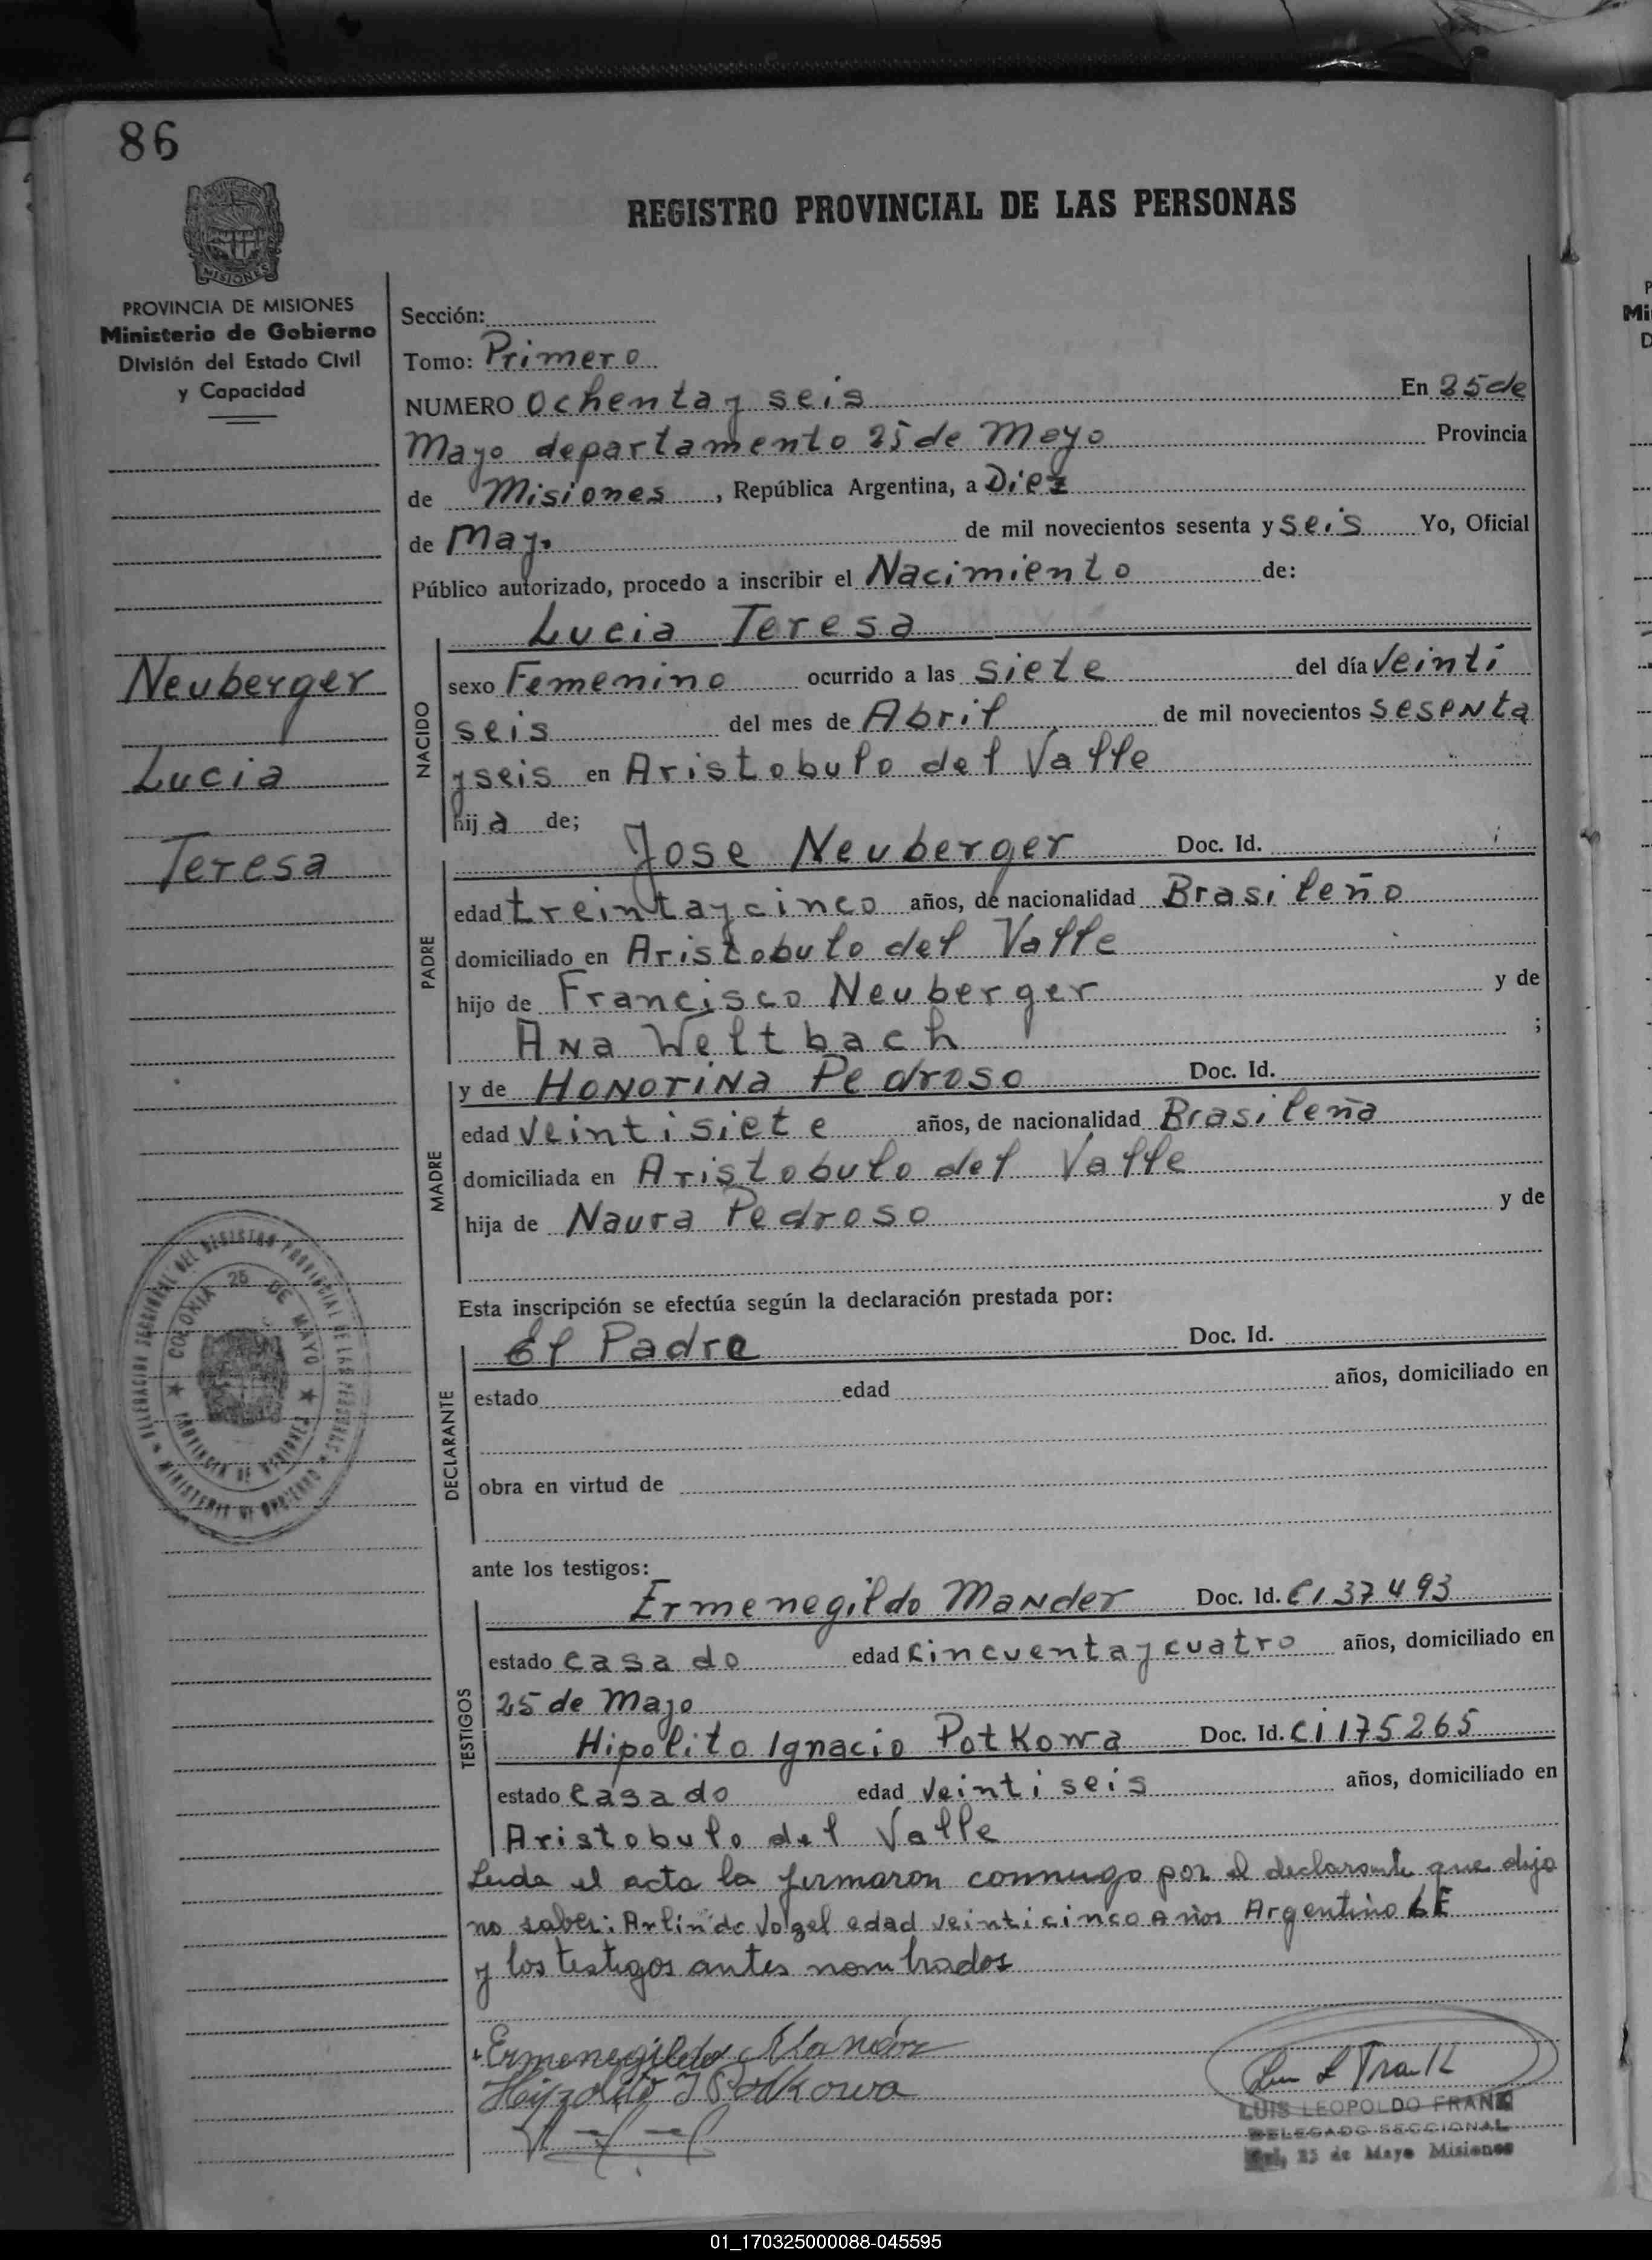 86
MISIONES
REGISTRO PROVINCIAL DE LAS PERSONAS
PROVINCIA DE MISIONES
Ministerio de Gobierno
División del Estado Civil
y Capacidad
Neuberger
Lucia
Teresa
Sección:
Tomo: Primero
NUMERO Ochenta y seis En 25 de
Mayo departamento 25 de Mayo Provincia
de Misiones, República Argentina, a Diez
de Mayo de mil novecientos sesenta y seis Yo, Oficial
Público autorizado, procedo a inscribir el Nacimiento de:
Lucia Teresa
NACIDO
sexo Femenino ocurrido a las siete del día Veinti
seis del mes de Abril de mil novecientos sesenta
y seis en Aristobulo del Valle
hija de;
PADRE
Jose Neuberger Doc. Id.
edad treinta y cinco años, de nacionalidad Brasileño
domiciliado en Aristobulo del Valle
hijo de Francisco Neuberger y de
Ana Weltbach ;
MADRE
y de Honorina Pedroso Doc. Id.
edad Veintisiete años, de nacionalidad Brasileña
domiciliada en Aristobulo del Valle
hija de Naura Pedroso y de
Esta inscripción se efectúa según la declaración prestada por:
DECLARANTE
El Padre Doc. Id.
estado edad años, domiciliado en
obra en virtud de
ante los testigos:
TESTIGOS
Ermenegildo Mander Doc. Id. CI 37493
estado casado edad Cincuenta y cuatro años, domiciliado en
25 de Mayo
Hipolito Ignacio Potkowa Doc. Id. Ci 175265
estado Casado edad Veintiseis años, domiciliado en
Aristobulo del Valle
Leida el acta la firmaron conmigo por el declarante que dijo
no saber: Arlindo Vogel edad veinticinco años Argentino LE
y los testigos antes nombrados
DELEGACION SECCIONAL DEL REGISTRO PROVINCIAL DE LAS PERSONAS
MINISTERIO DE GOBIERNO
COLONIA 25 DE MAYO
PROVINCIA DE MISIONES
Ermenegildo Mander
Hipolito I Potkowa
LUIS LEOPOLDO FRANK
DELEGADO SECCIONAL
Col. 25 de Mayo Misiones
01_170325000088-045595